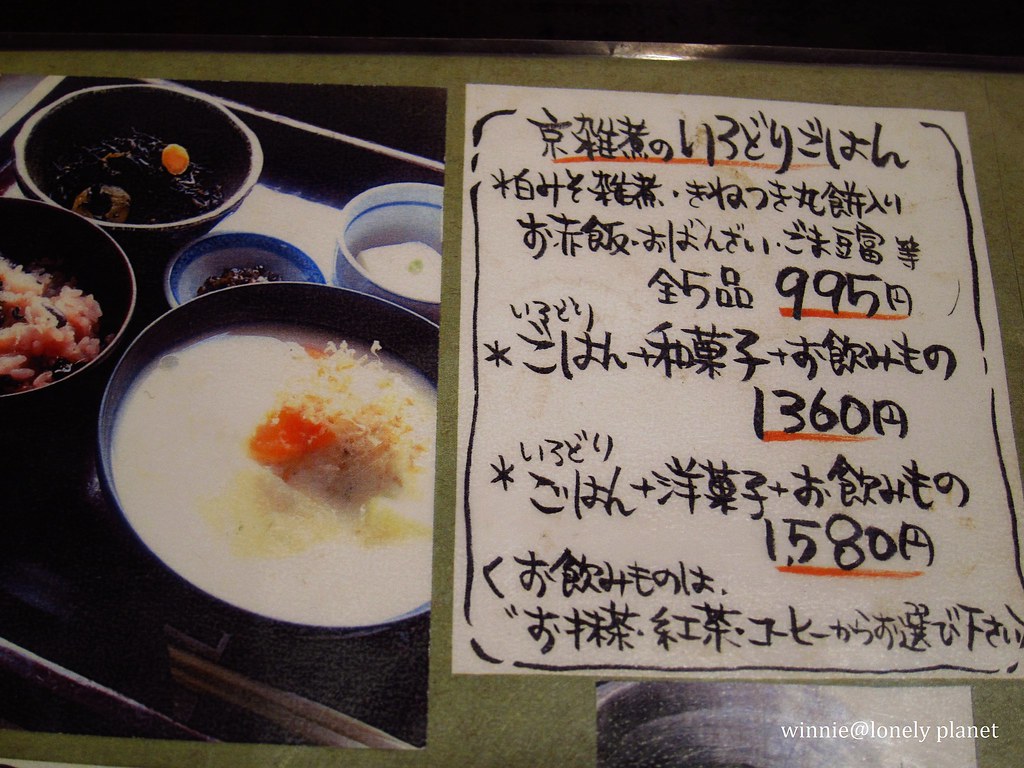 京雑煮のいろどりごはん
*白みそ雑煮・きねつき丸餅入り
お赤飯・おばんざい・ごま豆富 等
全5品 995円
いろどり
*ごはん+和菓子+お飲みもの
1360円
いろどり
*ごはん+洋菓子+お飲みもの
1,580円
くお飲みものは、
お抹茶・紅茶・コーヒーからお選び下さい
winnie@lonely planet